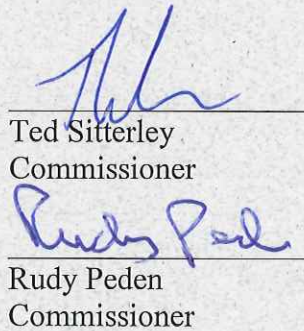 Ted Sitterley
Commissioner
Rudy Peden
Rudy Peden
Commissioner